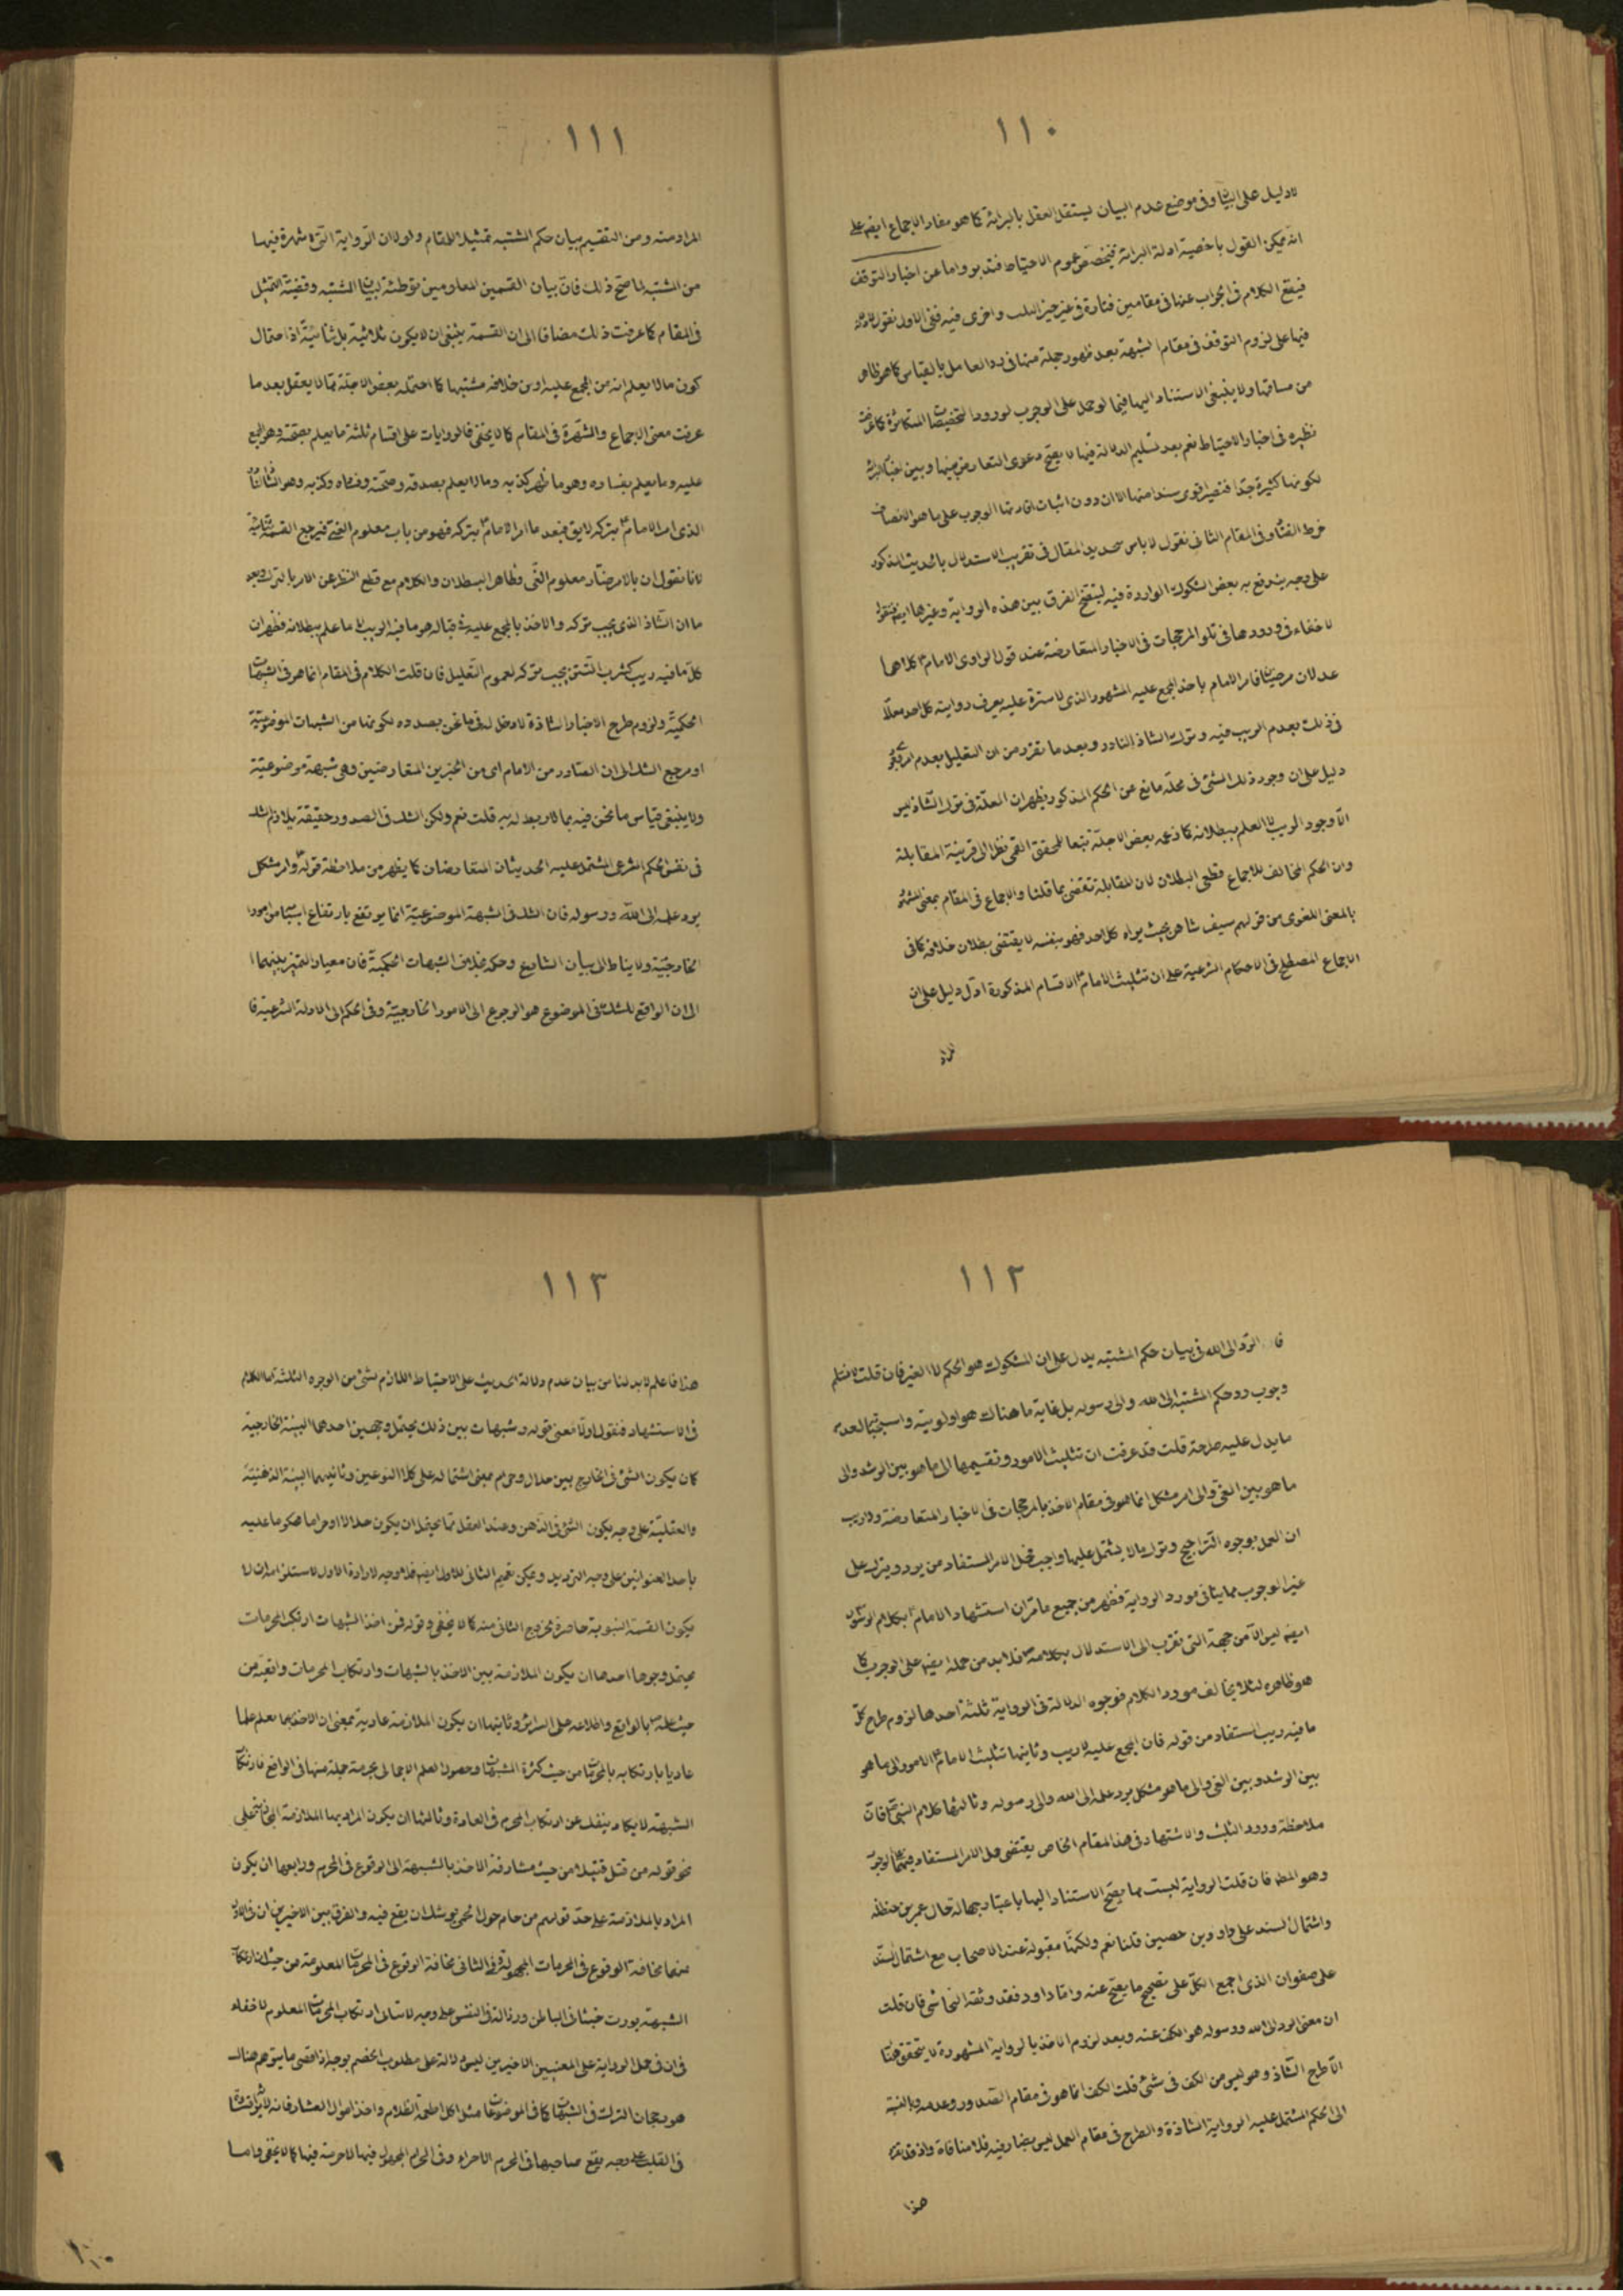 ١١٠
لا دليل على البيان وفى موضع عدم البيان يستقل العقل بالبرائة كما هو مفاد الاجماع ايضا على
انه يمكن القول باخصية ادلة البرائة فيخصص عموم الاحتياط فتدبر واما عن اخبار التوقف
فيقع الكلام فى الجواب عنها فى مقامين فتارة فى غير خبر التثليث واخرى فيه ففى الاول نقول لا دلالة
فيها على لزوم التوقف فى مقام الشبهة بعد ظهور جملة منها فى رد العامل بالقياس كما هو ظاهر
من مساقها ولا ينبغى الاستناد اليها فيما لو حمل على الوجوب لورود التخصيصات المتكاثرة كما عرفت
نظيره فى اخبار الاحتياط نعم بعد تسليم الدلالة فيها لا يصح دعوى التعارض بينها وبين اخبار البرائة
لكونها كثيرة جدا فتصير اقوى سندا منها الا ان دون اثبات افادتها الوجوب على ما هو الانصاف
خرط القتاد وفى المقام الثانى نقول لا باس بتجديد المقال فى تقريب الاستدلال بالحديث المذكور
على وجه يندفع به بعض الشكوك الواردة فيه ليتضح الفرق بين هذه الرواية وغيرها ايضا فنقول
لا خفاء فى ورودها فى تلو المرجحات فى الاخبار المتعارضة عند قول الراوى للامام كلاهما
عدلان مرضيان فامر الامام باخذ المجمع عليه المشهور الذى لا سترة عليه يعرف روايته كل احد معللا
فى ذلك بعدم الريب فيه وترك الشاذ النادر وبعد ما تقرر من ان التعليل بعدم امر يكون
دليل على ان وجود ذلك الشئ فى محله مانع عن الحكم المذكور فيظهر ان العلة فى ترك الشاذ ليس
الا وجود الريب لا العلم ببطلانه كما زعمه بعض الاجلة تبعا للمحقق القمى نظرا الى قرينة المقابلة
وان الحكم المخالف للاجماع قطعى البطلان لان المقابلة تقتضى بما قلنا والاجماع فى المقام بمعنى الشهرة
بالمعنى اللغوى من قولهم سيف شاهر بحيث يراه كل احد فهو بنفسه لا يقتضى بطلان خلافه كما فى
الاجماع المصطلح فى الاحكام الشرعية على ان تثليث الامام الاقسام المذكورة ادل دليل على ان
المراد
١١١
المراد منه ومن التقسيم بيان حكم المشتبه تمثيلا للمقام ولولا ان الرواية التى لا شهرة فيها
من المشتبه لما صح ذلك فان بيان القسمين المعلومين توطئة لبيان المشتبه وقضيته التمثيل
فى المقام كما عرفت ذلك مضافا الى ان القسمة ينبغى ان لا يكون ثلاثية بل ثنائية اذ احتمال
كون ما لا يعلم انه من المجمع عليه او من خلافه مشتبها كما احتمله بعض الاجلة مما لا يعقل بعد ما
عرفت معنى الاجماع والشهرة فى المقام كما لا يخفى فالروايات على اقسام ثلثة ما يعلم بصحته وهو المجمع
عليه وما يعلم بفساده وهو ما ظهر كذبه وما لا يعلم بصدقه وصحته وفساده وكذبه وهو الشاذ النادر
الذى امر الامام بتركه لا يق فبعد ما امر الامام بتركه فهو من باب معلوم الغى فيرجع القسمة ثنائية
لانا نقول ان بالامر صار معلوم الغى وظاهر البطلان والكلام مع قطع النظر عن الامر بالترك وبعد
ما ان الشاذ الذى يجب تركه والاخذ بالمجمع عليه فى قباله هو ما فيه الريب لا ما علم ببطلانه فظهر ان
كل ما فيه ريب كشرب التتن يجب تركه لعموم التعليل فان قلت الكلام فى المقام انما هو فى الشبهات
الحكمية ولزوم طرح الاخبار الشاذة لا دخل له فى ما نحن بصدده لكونها من الشبهات الموضوعية
او مرجع الشك الى ان الصادر من الامام اى من الخبرين المتعارضين وهى شبهة موضوعية
ولا ينبغى قياس ما نحن فيه بما لا ربط له به قلت نعم ولكن الشك فى الصدور حقيقة يلازم الشك
فى نفس الحكم الشرعى المشتمل عليه الحديثان المتعارضان كما يظهر من ملاحظة قوله وامر مشكل
يرد علمه الى الله ورسوله فان الشك فى الشبهة الموضوعية انما يرتفع بارتفاع اسبابها من امور
الخارجية ولا يناط الى بيان الشارع وحكمه بخلاف الشبهات الحكمية فان معيار التميز بينهما
الى ان الرافع للشك فى الموضوع هو الرجوع الى الامور الخارجية وفى الحكم الى الادلة الشرعية فا
١١٢
فان الرد الى الله فى بيان حكم المشتبه يدل على ان المشكوك هو الحكم لا الغير فان قلت لا نسلم
وجوب رد حكم المشتبه الى الله والى رسوله بل غاية ما هناك هو اولويته واستحبابها لعدم
ما يدل عليه صراحة قلت قد عرفت ان تثليث الامور وتقسيمها الى ما هو بين الرشد والى
ما هو بين الغى والى امر مشكل انما هو فى مقام الاخذ بالمرجحات فى الاخبار المتعارضة ولا ريب
ان العمل بوجوه التراجيح وترك ما لا يشتمل عليها واجب فحمل الامر المستفاد من يرد ويترك على
غير الوجوب مما ينافى مورد الرواية فظهر من جميع ما مر ان استشهاد الامام بكلام الرسول
ايضا ليس الا من جهة التى تقرب الى الاستدلال بكلامه فلا بد من حمله ايضا على الوجوب كما
هو ظاهره لئلا يخالف مورد الكلام فوجوه الدلالة فى الرواية ثلثة احدها لزوم طرح كل
ما فيه ريب المستفاد من قوله فان المجمع عليه لا ريب وثانيها تثليث الامام الامور الى ما هو
بين الرشد وبين الغى والى ما هو مشكل يرد علمه الى الله والى رسوله وثالثها كلام النبى فان
ملاحظة ورود التثليث والاشتهاد فى هذا المقام الخاص يقتضى حمل الامر المستفاد فيهما على الوجوب
وهو المط فان قلت الرواية ليست مما يصح الاستناد اليها باعتبار جهالة حال عمر بن حنظله
واشتمال السند على داود بن حصين قلنا نعم ولكنها مقبولة عند الاصحاب مع اشتمال السند
على صفوان الذى اجمع الكل على تصحيح ما يصح عنه واما داود فقد وثقه النجاشى فان قلت
ان معنى الرد الى الله ورسوله هو الكف عنه وبعد لزوم الاخذ بالرواية المشهورة لا يتحقق هنا
الا طرح الشاذ وهو ليس من الكف فى شئ قلت الكف انما هو فى مقام الصدور وعدمه وبالنسبة
الى الحكم المشتمل عليه الرواية الشاذة والطرح فى مقام العمل ليس بضار فيه فلا منافاة واذ قد تقرر
هذا
١١٣
هذا فاعلم لا بد لنا من بيان عدم دلالة الحديث على الاحتياط اللازم بشئ من الوجوه الثلثة اما الكلام
فى الاستشهاد فنقول اولا معنى قوله وشبهات بين ذلك يحتمل وجهين احدهما البينة الخارجية
كان يكون الشئ فى الخارج بين حلال وحرام بمعنى اشتماله على كلا النوعين وثانيهما البينة الذهنية
والعقلية على وجه يكون الشئ فى الذهن وعند العقل مما يحتمل ان يكون حلالا او حراما محكوما عليه
باحد العنوانين على وجه الترديد ويمكن تعميم الثانى للاول ايضا فلا وجه لارادة الاول لاستلزامه ان لا
يكون القسمة النبوية حاصرة لخروج الثانى منه كما لا يخفى وقوله فمن اخذ الشبهات ارتكب المحرمات
يحتمل وجوها احدها ان يكون الملازمة بين الاخذ بالشبهات وارتكاب المحرمات واقعية من
حيث علمه بالواقع واطلاعه على السرائر وثانيها ان يكون الملازمة عادية بمعنى ان الاخذ بها يعلم علما
عاديا بارتكابه بالمحرمات من حيث كثرة المشتبهات وحصول العلم الاجمالى بحرمة جملة منها فى الواقع فارتكاب
الشبهة لا يكاد ينفك عن ارتكاب المحرم فى العادة وثالثها ان يكون المراد بها الملازمة المجازية على
نحو قوله من قتل قتيلا من حيث مشارفة الاخذ بالشبهة الى الوقوع فى المحرم ورابعها ان يكون
المراد بالملازمة على حد قولهم من حام حول الحمى يوشك ان يقع فيه والفرق بين الاخيرين ان فى الاول
منهما مخافة الوقوع فى المحرمات المجهولة وفى الثانى مخافة الوقوع فى المحرمات المعلومة من حيث ان ارتكاب
الشبهة يورث خبثا فى الباطن ورذالة فى النفس على وجه لا يبالى ارتكاب المحرمات المعلوم لا خفاء
فى ان فى حمل الرواية على المعنيين الاخيرين ليس دلالة على مطلوب الخصم بوجه اذ اقصى ما يتوهم هناك
هو رجحان الترك فى الشبهات كما فى الموضوعات مثل اكل اطعمة الظلام واخذ اموال العشار فانه يؤثر قساوة
فى القلب على وجه يقع صاحبها فى المحرم الاحراء وفى المحرم المجهول فيها لا حرمة فيها كما لا يخفى واما